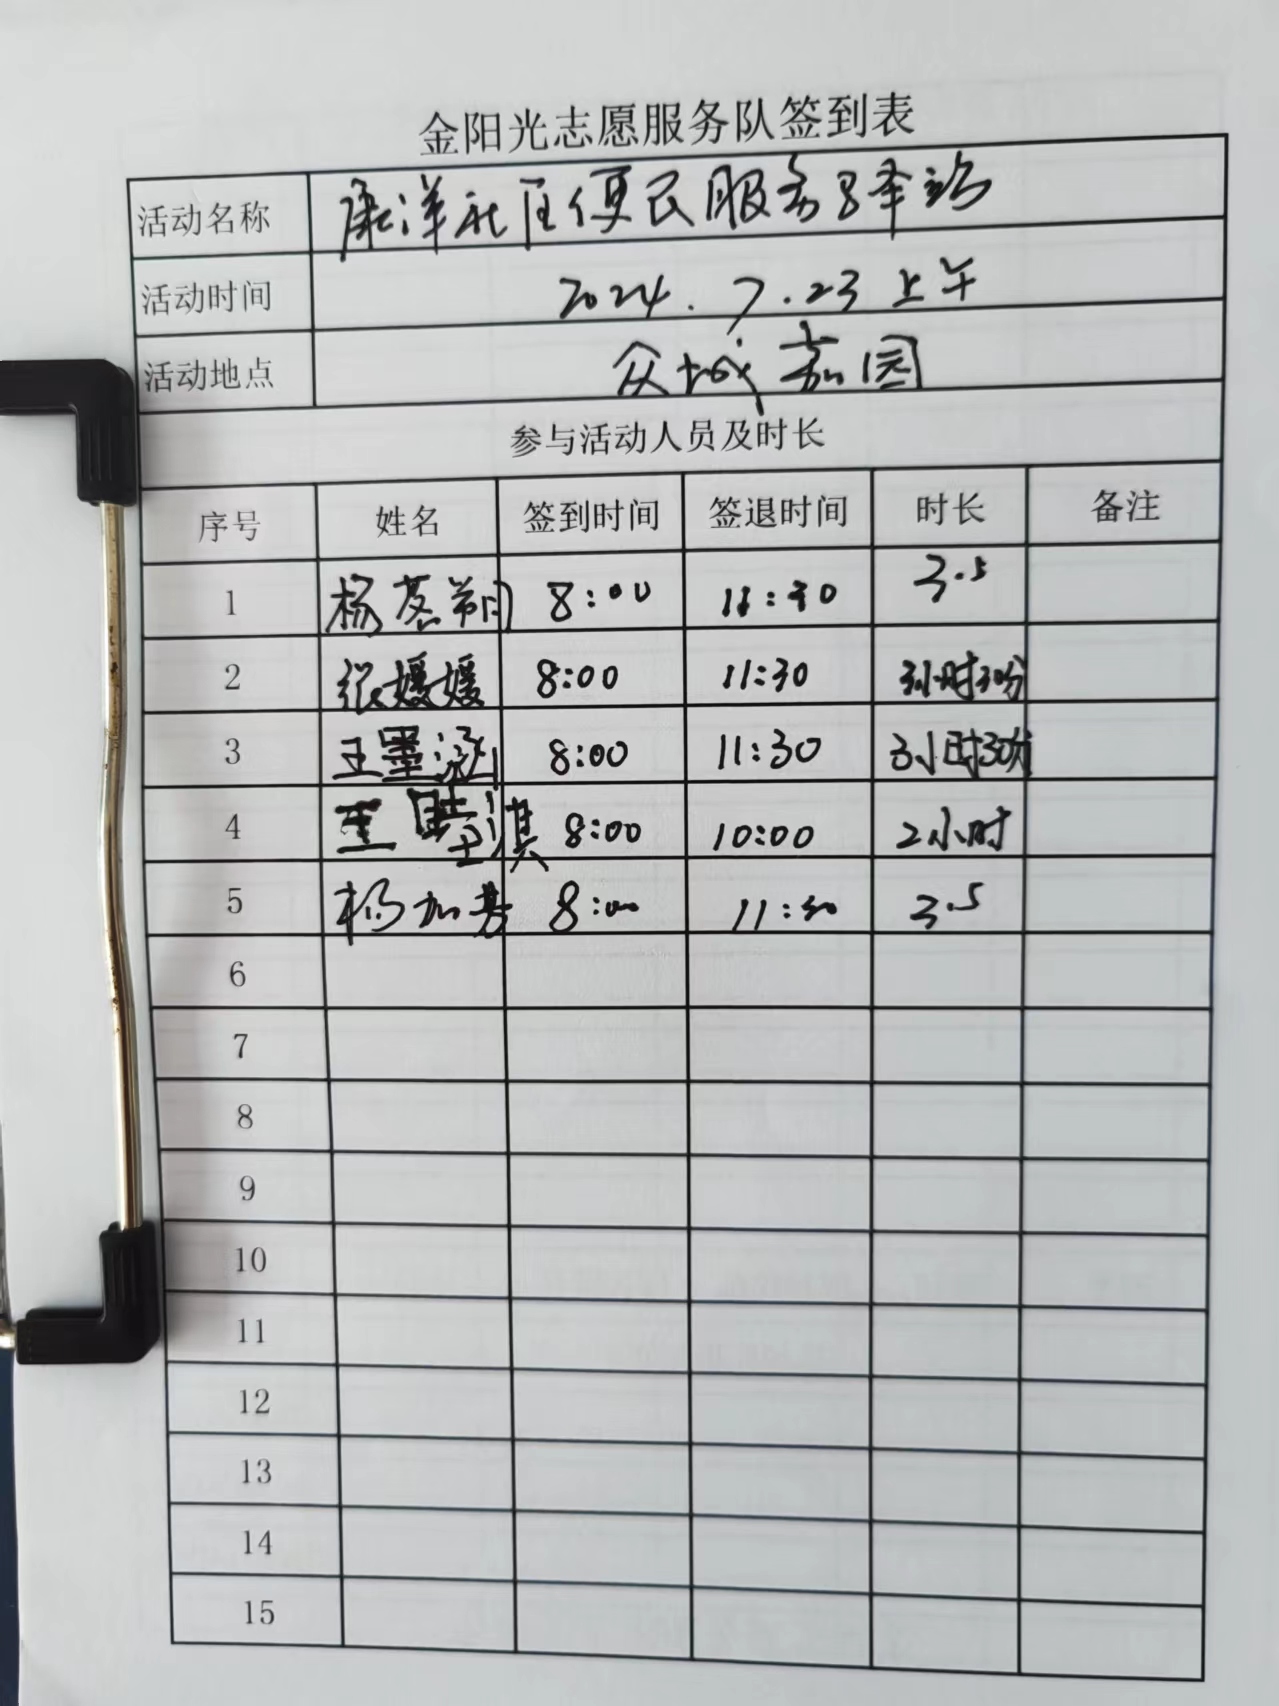 金阳光志愿服务队签到表
活动名称 康洋社区便民服务驿站
活动时间 2024.7.23 上午
活动地点 众城嘉园
参与活动人员及时长
序号 姓名 签到时间 签退时间 时长 备注
1 杨 8:00 11:30 3.5
2 张媛媛 8:00 11:30 3小时30分
3 王墨涵 8:00 11:30 3小时30分
4 王 淇 8:00 10:00 2小时
5 杨加 8:00 11:30 3.5
6
7
8
9
10
11
12
13
14
15